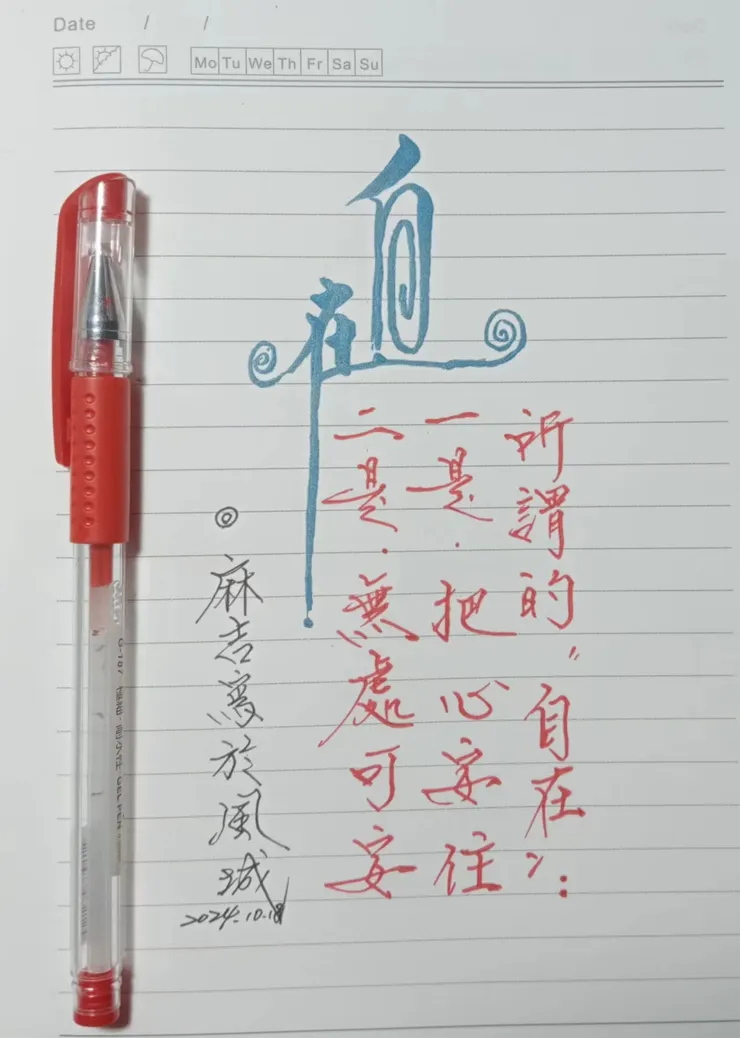 Date / /
Mo Tu We Th Fr Sa Su
自在
所謂的“自在”：
一是．把心安住
二是．無處可安
◎麻吉寫於風城
2024.10.18